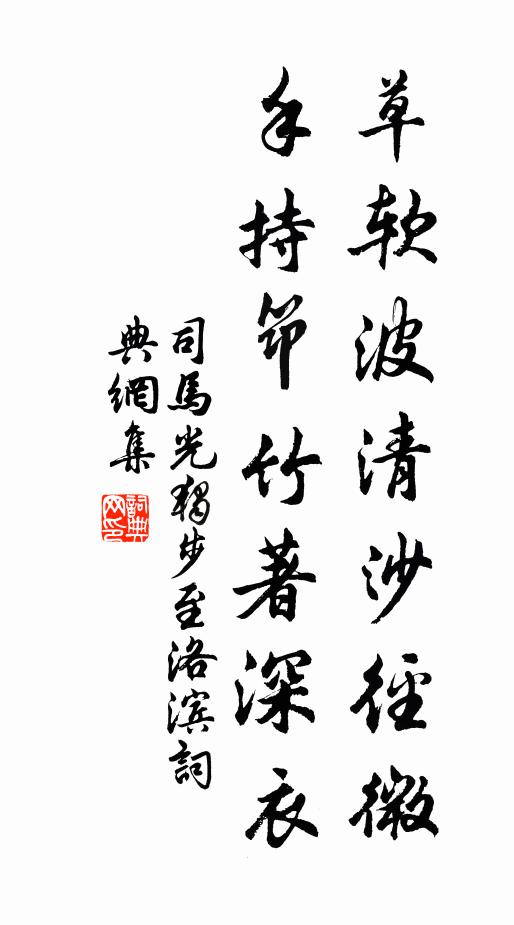 草软波清沙径微
手持筇竹著深衣
司馬光獨步至洛滨詞
典網集
詞典
网印